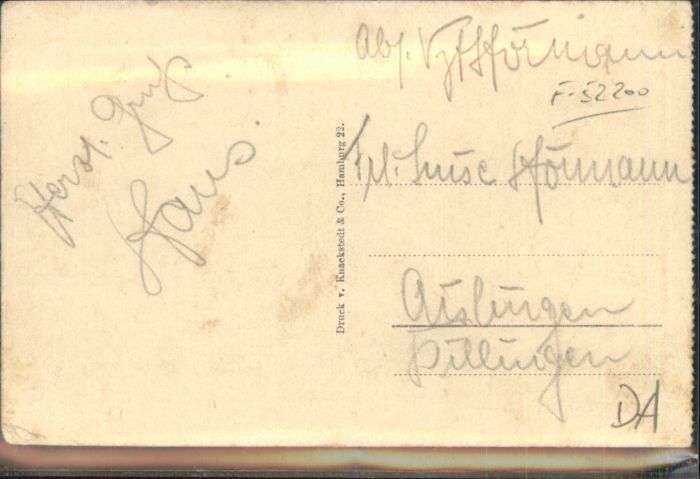 Herzl. Gruß
Hans.
Druck v. Knackstedt & Co., Hamburg 22.
Abs. Störmann
F-52200
Frl. Luise Störmann
Aislingen
Dillingen
DA